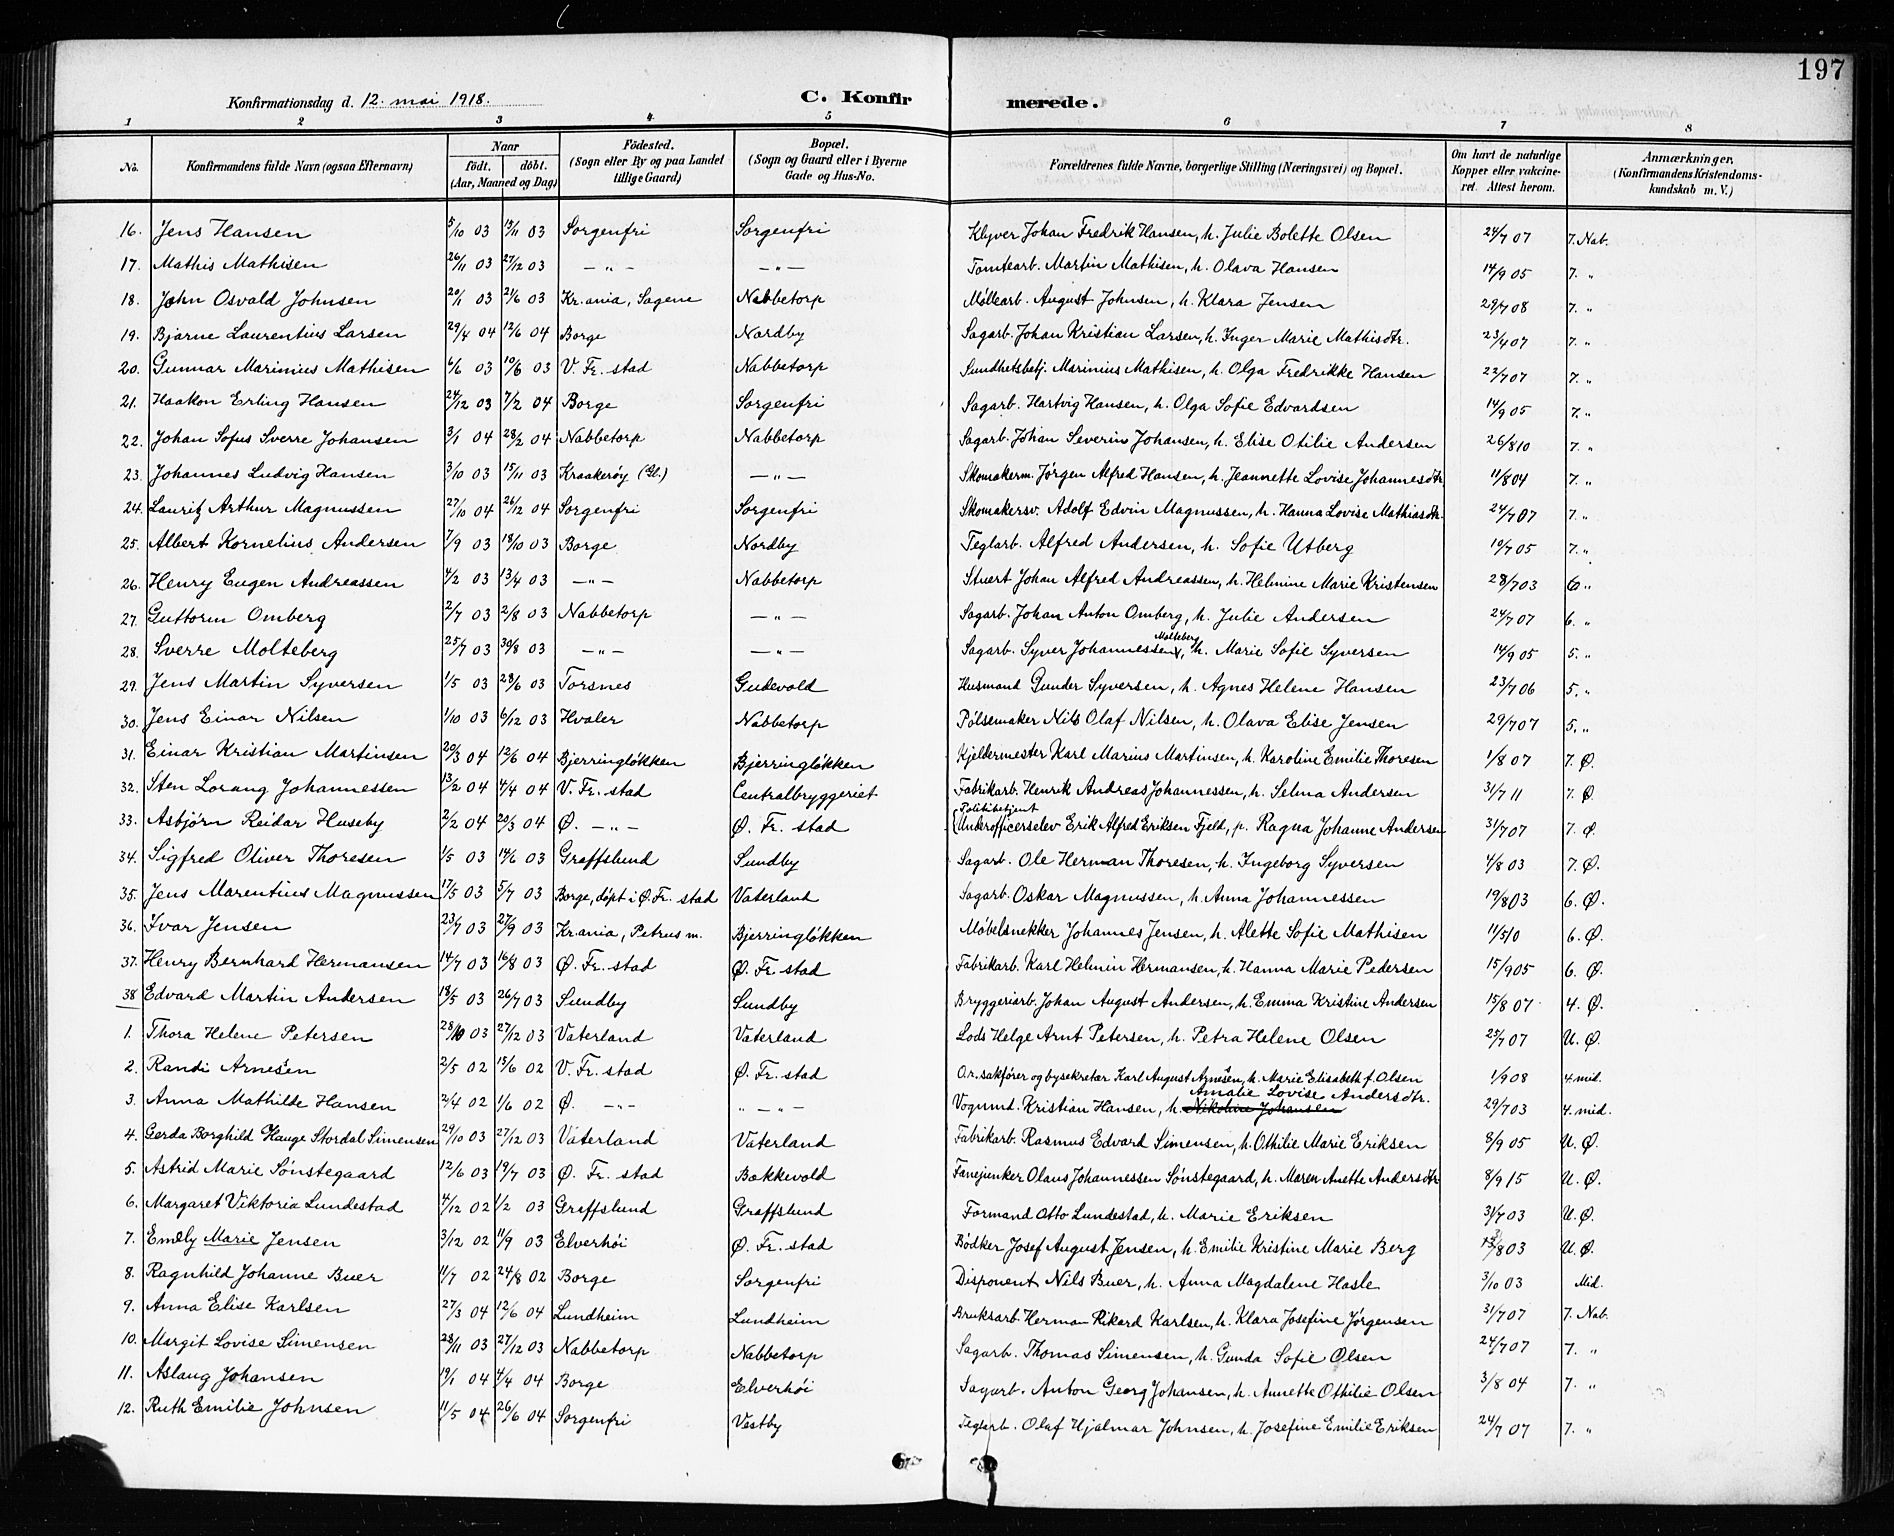 197
Konfirmationsdag d. 12. mai 1918. C. Konfir merede.
1 2 3 4 5 6 7 8
No. Konfirmandens fulde Navn (ogsaa Efternavn) Naar født. døbt. (Aar, Maaned og Dag) Fødested. (Sogn eller By og paa Landet tillige Gaard) Bopæl. (Sogn og Gaard eller i Byerne Gade og Hus-No. Forældrenes fulde Navne, borgerlige Stilling (Næringsvei) og Bopæl. Om havt de naturlige Kopper eller vakcineret. Attest herom. Anmærkninger. (Konfirmandens Kristendomskundskab m. V.)
16. Jens Hansen 5/10 03 15/11 03 Sorgenfri Sorgenfri Klyver Johan Fredrik Hansen, h. Julie Bolette Olsen 24/7 07 7. Nab.
17. Mathis Mathisen 26/11 03 27/12 03 — " — — " — Tomtearb. Martin Mathisen, h. Olava Hansen 14/9 05 7. "
18. John Osvald Johnsen 20/1 03 21/6 03 Kr.ania, Sagene Nabbetorp Møllearb. August Johnsen, h. Klara Jensen 29/7 08 7. "
19. Bjarne Laurentius Larsen 29/4 04 12/6 04 Borge Nordby Sagarb. Johan Kristian Larsen, h. Inger Marie Mathisdtr. 23/4 07 7. "
20. Gunnar Marinius Mathisen 6/6 03 10/6 03 V. Fr. stad Nabbetorp Sundhetsbetj. Marinius Mathisen, h. Olga Fredrikke Hansen 22/7 07 7. "
21. Haakon Erling Hansen 24/12 03 7/2 04 Borge Sorgenfri Sagarb. Hartvig Hansen, h. Olga Sofie Edvardsen 14/9 05 7. "
22. Johan Sofus Sverre Johansen 3/1 04 28/2 04 Nabbetorp Nabbetorp Sagarb. Johan Severin Johansen, h. Elise Otilie Andersen 26/8 10 7. "
23. Johannes Ludvig Hansen 3/10 03 15/11 03 Kraakerøy (Gl.) — " — Skomakerm. Jørgen Alfred Hansen, h. Jeannette Lovise Johannesdtr 11/8 04 7. "
24. Lauritz Arthur Magnussen 27/10 04 26/12 04 Sorgenfri Sorgenfri Skomakersv. Adolf Edvin Magnussen, h. Hanna Lovise Mathiasdtr. 24/7 07 7. "
25. Albert Kornelius Andersen 7/9 03 18/10 03 Borge Nordby Teglarb. Alfred Andersen, h. Sofie Utberg 10/7 05 7. "
26. Henry Eugen Andreassen 4/2 03 13/4 03 — " — Nabbetorp Stuert Johan Alfred Andreassen, h. Helmine Marie Kristensen 28/7 03 6 "
27. Guttorm Omberg 2/7 03 2/8 03 Nabbetorp — " — Sagarb. Johan Anton Omberg, h. Julie Andersen 24/7 07 6. "
28. Sverre Molteberg 25/7 03 30/8 03 — " — — " — Sagarb. Syver Johannessen Molteberg, h. Marie Sofie Syversen 14/9 05 5. "
29. Jens Martin Syversen 1/5 03 28/6 03 Torsnes Gudevold Husmand Gunder Syversen, h. Agnes Helene Hansen 23/7 06 5. "
30. Jens Einar Nilsen 1/10 03 6/12 03 Hvaler Nabbetorp Pølsemaker Nils Olaf Nilsen, h. Olava Elise Jensen 29/7 07 5. "
31. Einar Kristian Martinsen 20/3 04 12/6 04 Bjerringløkken Bjerringløkken Kjeldermester Karl Marius Martinsen, h. Karoline Emilie Thoresen 1/8 07 7. Ø.
32. Sten Lorang Johannessen 13/2 04 4/4 04 V. Fr. stad Centralbryggeriet Fabrikarb. Henrik Andreas Johannessen, h. Selma Andersen 31/7 11 7. Ø.
33. Asbjørn Reidar Huseby 2/2 04 20/3 04 Ø. — " — Ø. Fr. stad Politibetjent Underofficerselev Erik Alfred Eriksen Fjeld, p. Ragna Johanne Andersen 31/7 07 7. Ø.
34. Sigfred Oliver Thoresen 1/5 03 14/6 03 Graffslund Sundby Sagarb. Ole Herman Thoresen, h. Ingeborg Syversen 4/8 03 7. Ø.
35. Jens Marentius Magnussen 17/5 03 5/7 03 Borge, døpt i Ø. Fr. stad Vaterland Sagarb. Oskar Magnussen, h. Anna Johannessen 19/8 03 6. Ø.
36. Ivar Jensen 23/7 03 27/9 03 Kr.ania, Petrus m. Bjerringløkken Møbelsnekker Johannes Jensen, h. Alette Sofie Mathisen 11/5 10 6. Ø.
37. Henry Bernhard Hermansen 14/7 03 16/8 03 Ø. Fr. stad Ø. Fr. stad Fabrikarb. Karl Helmin Hermansen, h. Hanna Marie Pedersen 15/9 05 6. Ø.
38 Edvard Martin Andersen 18/5 03 26/7 03 Sundby Sundby Bryggeriarb. Johan August Andersen, h. Emma Kristine Andersen 15/8 07 4. Ø.
1. Thora Helene Petersen 28/10 03 27/12 03 Vaterland Vaterland Lods Helge Arnt Petersen, h. Petra Helene Olsen 25/7 07 U. Ø.
2. Randi Arnesen 2/5 02 15/6 02 V. Fr. stad Ø. Fr. stad O.r. sakfører og bysekretær Karl August Arnesen, h. Marie Elisabeth f. Olsen 1/9 08 4. mid.
3. Anna Mathilde Hansen 2/4 02 1/6 02 Ø. — " — " — " — Vognmd. Kristian Hansen, h. Nikoline Johansen Amalie Lovise Andersdtr. 29/7 03 4. mid.
4. Gerda Borghild Hauge Stordal Simensen 29/10 03 27/12 03 Vaterland Vaterland Fabrikarb. Rasmus Edvard Simensen, h. Othilie Marie Eriksen 8/9 05 U. Ø.
5. Astrid Marie Sønstegaard 12/6 03 19/7 03 Ø. Fr. stad Bakkevold Fanejunker Olaus Johannessen Sønstegaard, h. Maren Anette Andersdtr 8/9 15 U. Ø.
6. Margaret Viktoria Lundestad 4/12 02 1/2 03 Graffslund Graffslund Formand Otto Lundestad, h. Marie Eriksen 31/7 03 U. Ø.
7. Emely Marie Jensen 3/12 02 11/9 03 Elverhøi Ø. Fr. stad Bødker Josef August Jensen, h. Emilie Kristine Marie Berg /8 03 U. Ø.
8. Ragnhild Johanne Buer 11/7 02 24/8 02 Borge Sorgenfri Disponent Nils Buer, h. Anna Magdalene Hasle 3/10 03 Mid.
9. Anna Elise Karlsen 27/3 04 12/6 04 Lundheim Lundheim Bruksarb. Herman Rikard Karlsen, h. Klara Josefine Jørgensen 31/7 07 7. Nab.
10. Margit Lovise Simensen 28/11 03 27/12 03 Nabbetorp Nabbetorp Sagarb. Thomas Simensen, h. Gunda Sofie Olsen 24/7 07 7. "
11. Aslaug Johansen 19/1 04 4/4 04 Borge Elverhøi Sagarb. Anton Georg Johansen, h. Annette Othilie Olsen 3/8 04 7. "
12. Ruth Emilie Johnsen 11/5 04 26/6 04 Sorgenfri Vestby Teglarb. Olaf Hjalmar Johnsen, h. Josefine Emilie Eriksen 24/7 07 7. "